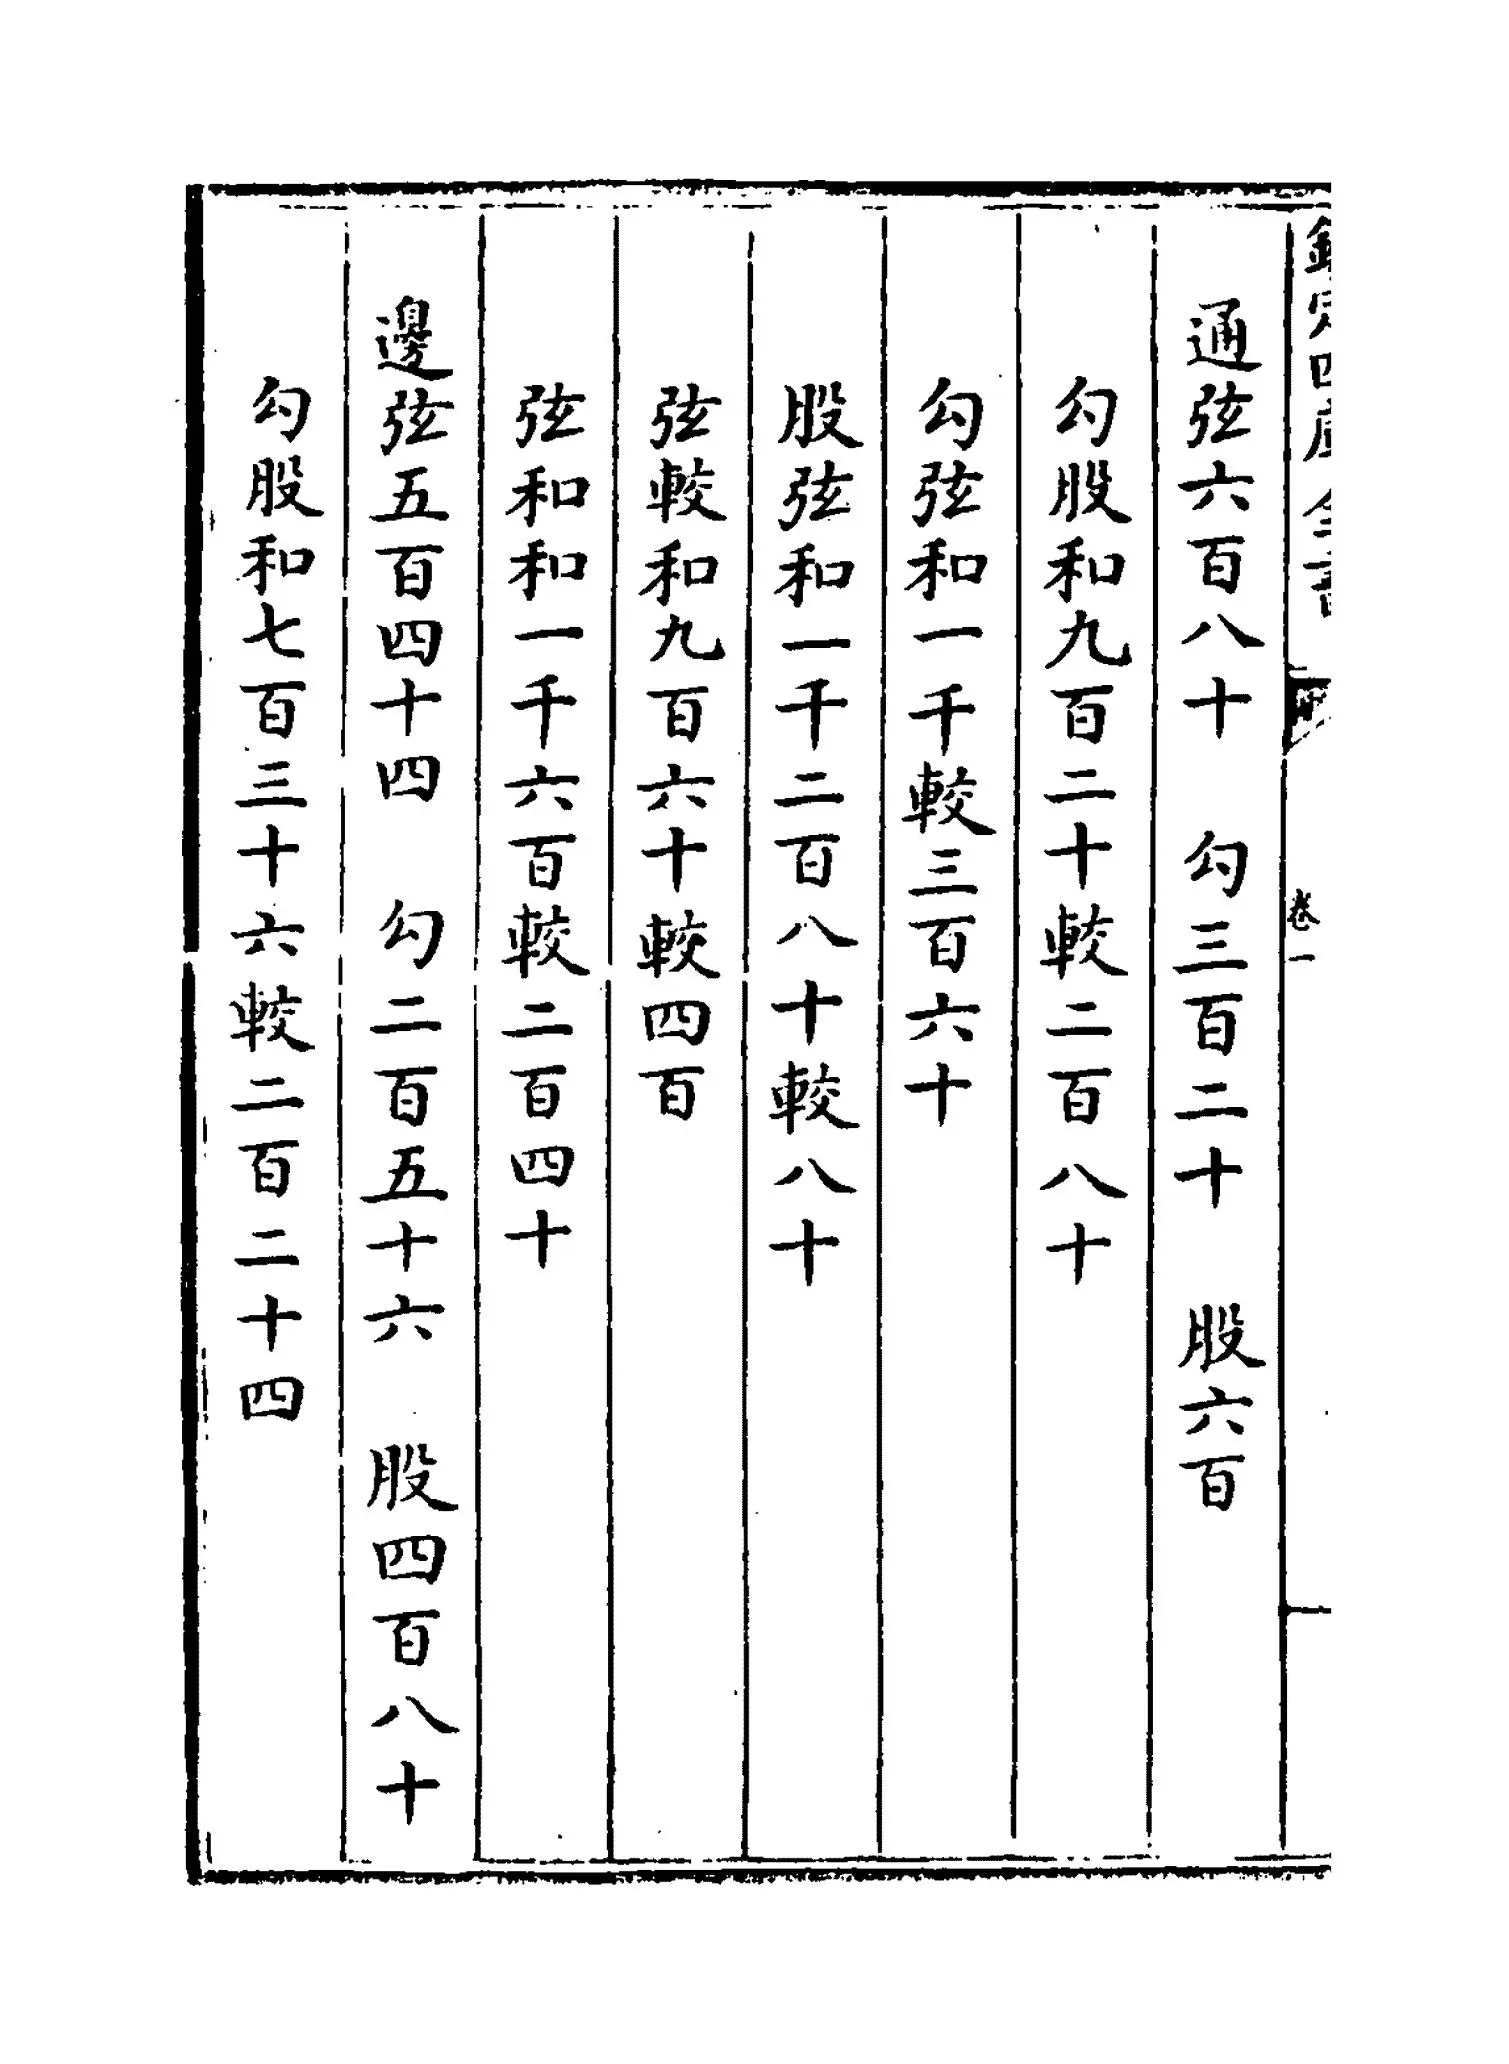 欽定四庫全書
卷一
通弦六百八十　勾三百二十　股六百
勾股和九百二十較二百八十
勾弦和一千較三百六十
股弦和一千二百八十較八十
弦較和九百六十較四百
弦和和一千六百較二百四十
邊弦五百四十四　勾二百五十六　股四百八十
勾股和七百三十六較二百二十四